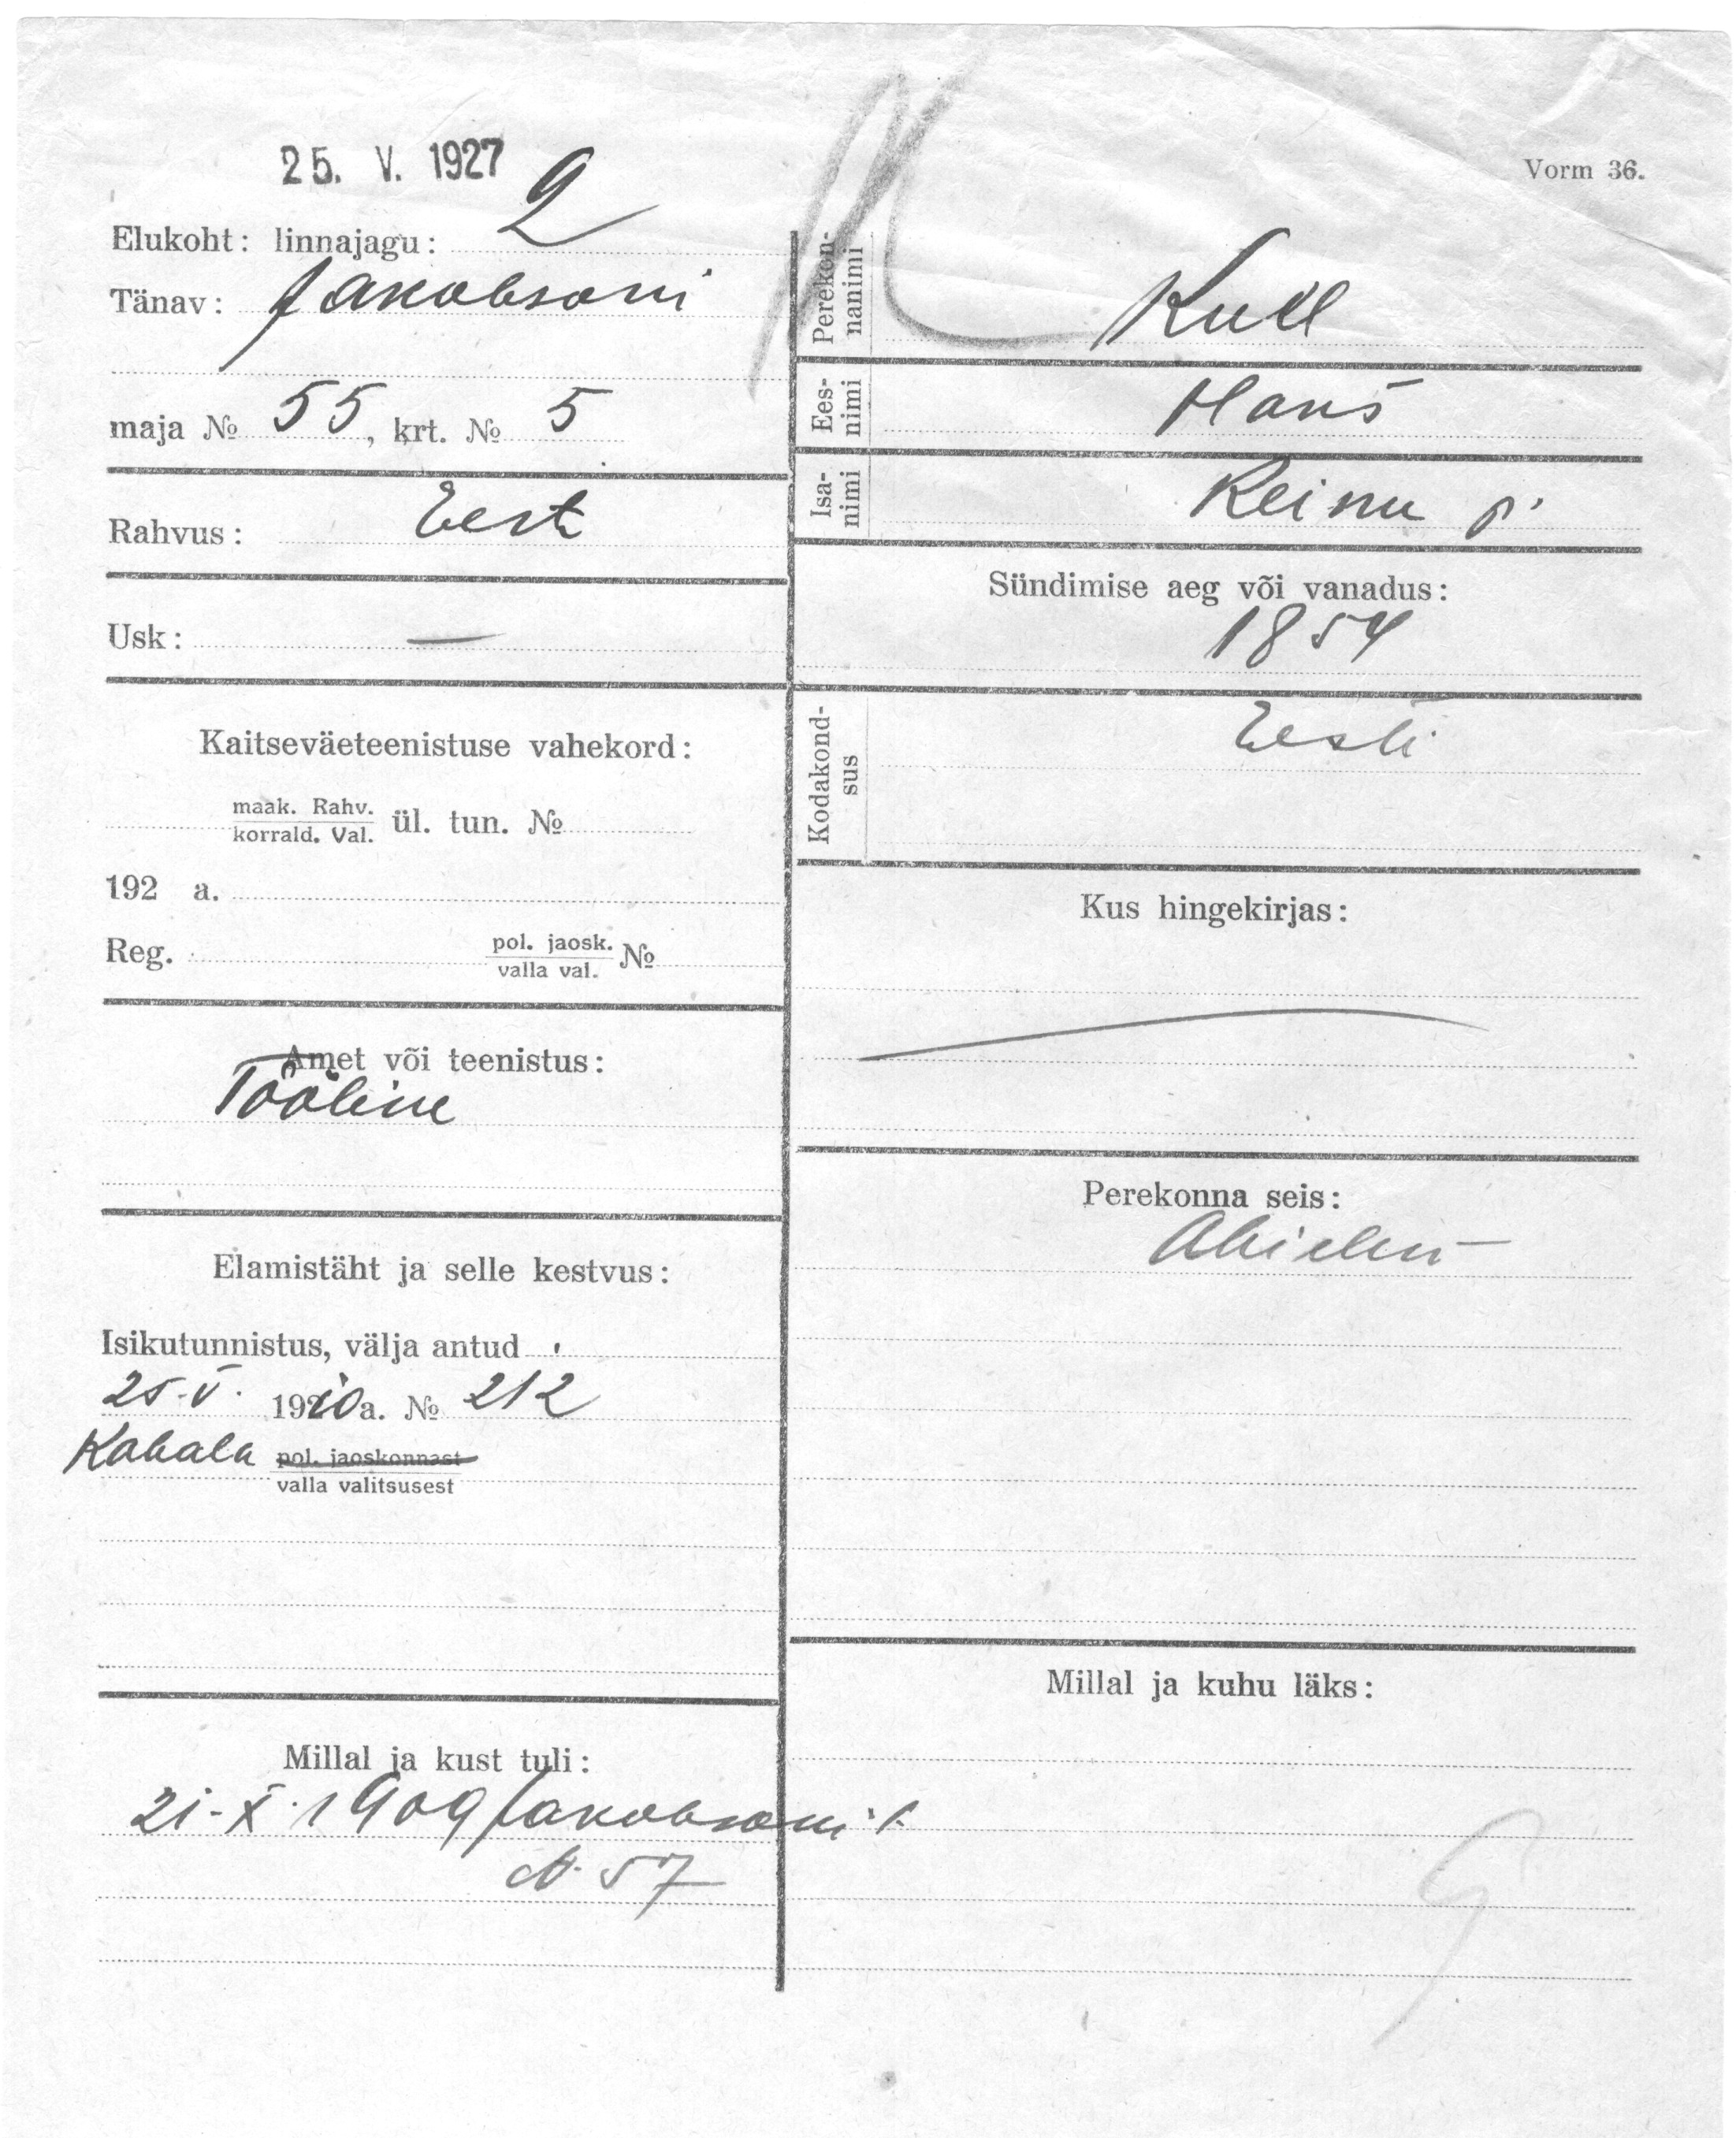 25. V. 1927
Vorm 36.
Elukoht: linnajagu: 2
Tänav: Jakobsoni
maja № 55, krt. № 5
Rahvus: Eest
Usk: —
Kaitseväeteenistuse vahekord:
maak. Rahv.
korrald. Val. ül. tun. №
192 a.
Reg. pol. jaosk.
valla val. №
Amet või teenistus:
Tööline
Elamistäht ja selle kestvus:
Isikutunnistus, välja antud
25.V. 1920a. № 212
Kabala pol. jaoskonnast
valla valitsusest
Millal ja kust tuli:
21-X.1909 Jakobsoni t.
N. 57
Perekon-
nanimi
Kull
Ees-
nimi
Hans
Isa-
nimi
Reinu p.
Sündimise aeg või vanadus:
1854
Kodakond-
sus
Eesti
Kus hingekirjas:
Perekonna seis:
Abielus
Millal ja kuhu läks: